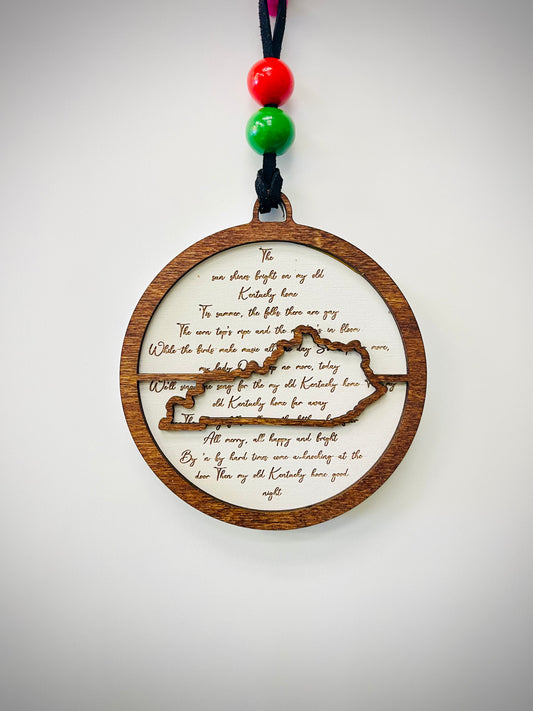 The
sun shines bright on my old
Kentucky home
'Tis summer, the folks there are gay
The corn top's ripe and the in bloom
While the birds make music all day more,
my lady no more, today
We'll song for the my old Kentucky home
old Kentucky home far away
The
All merry, all happy and bright
By 'n by hard times come a-knocking at the
door Then my old Kentucky home good
night